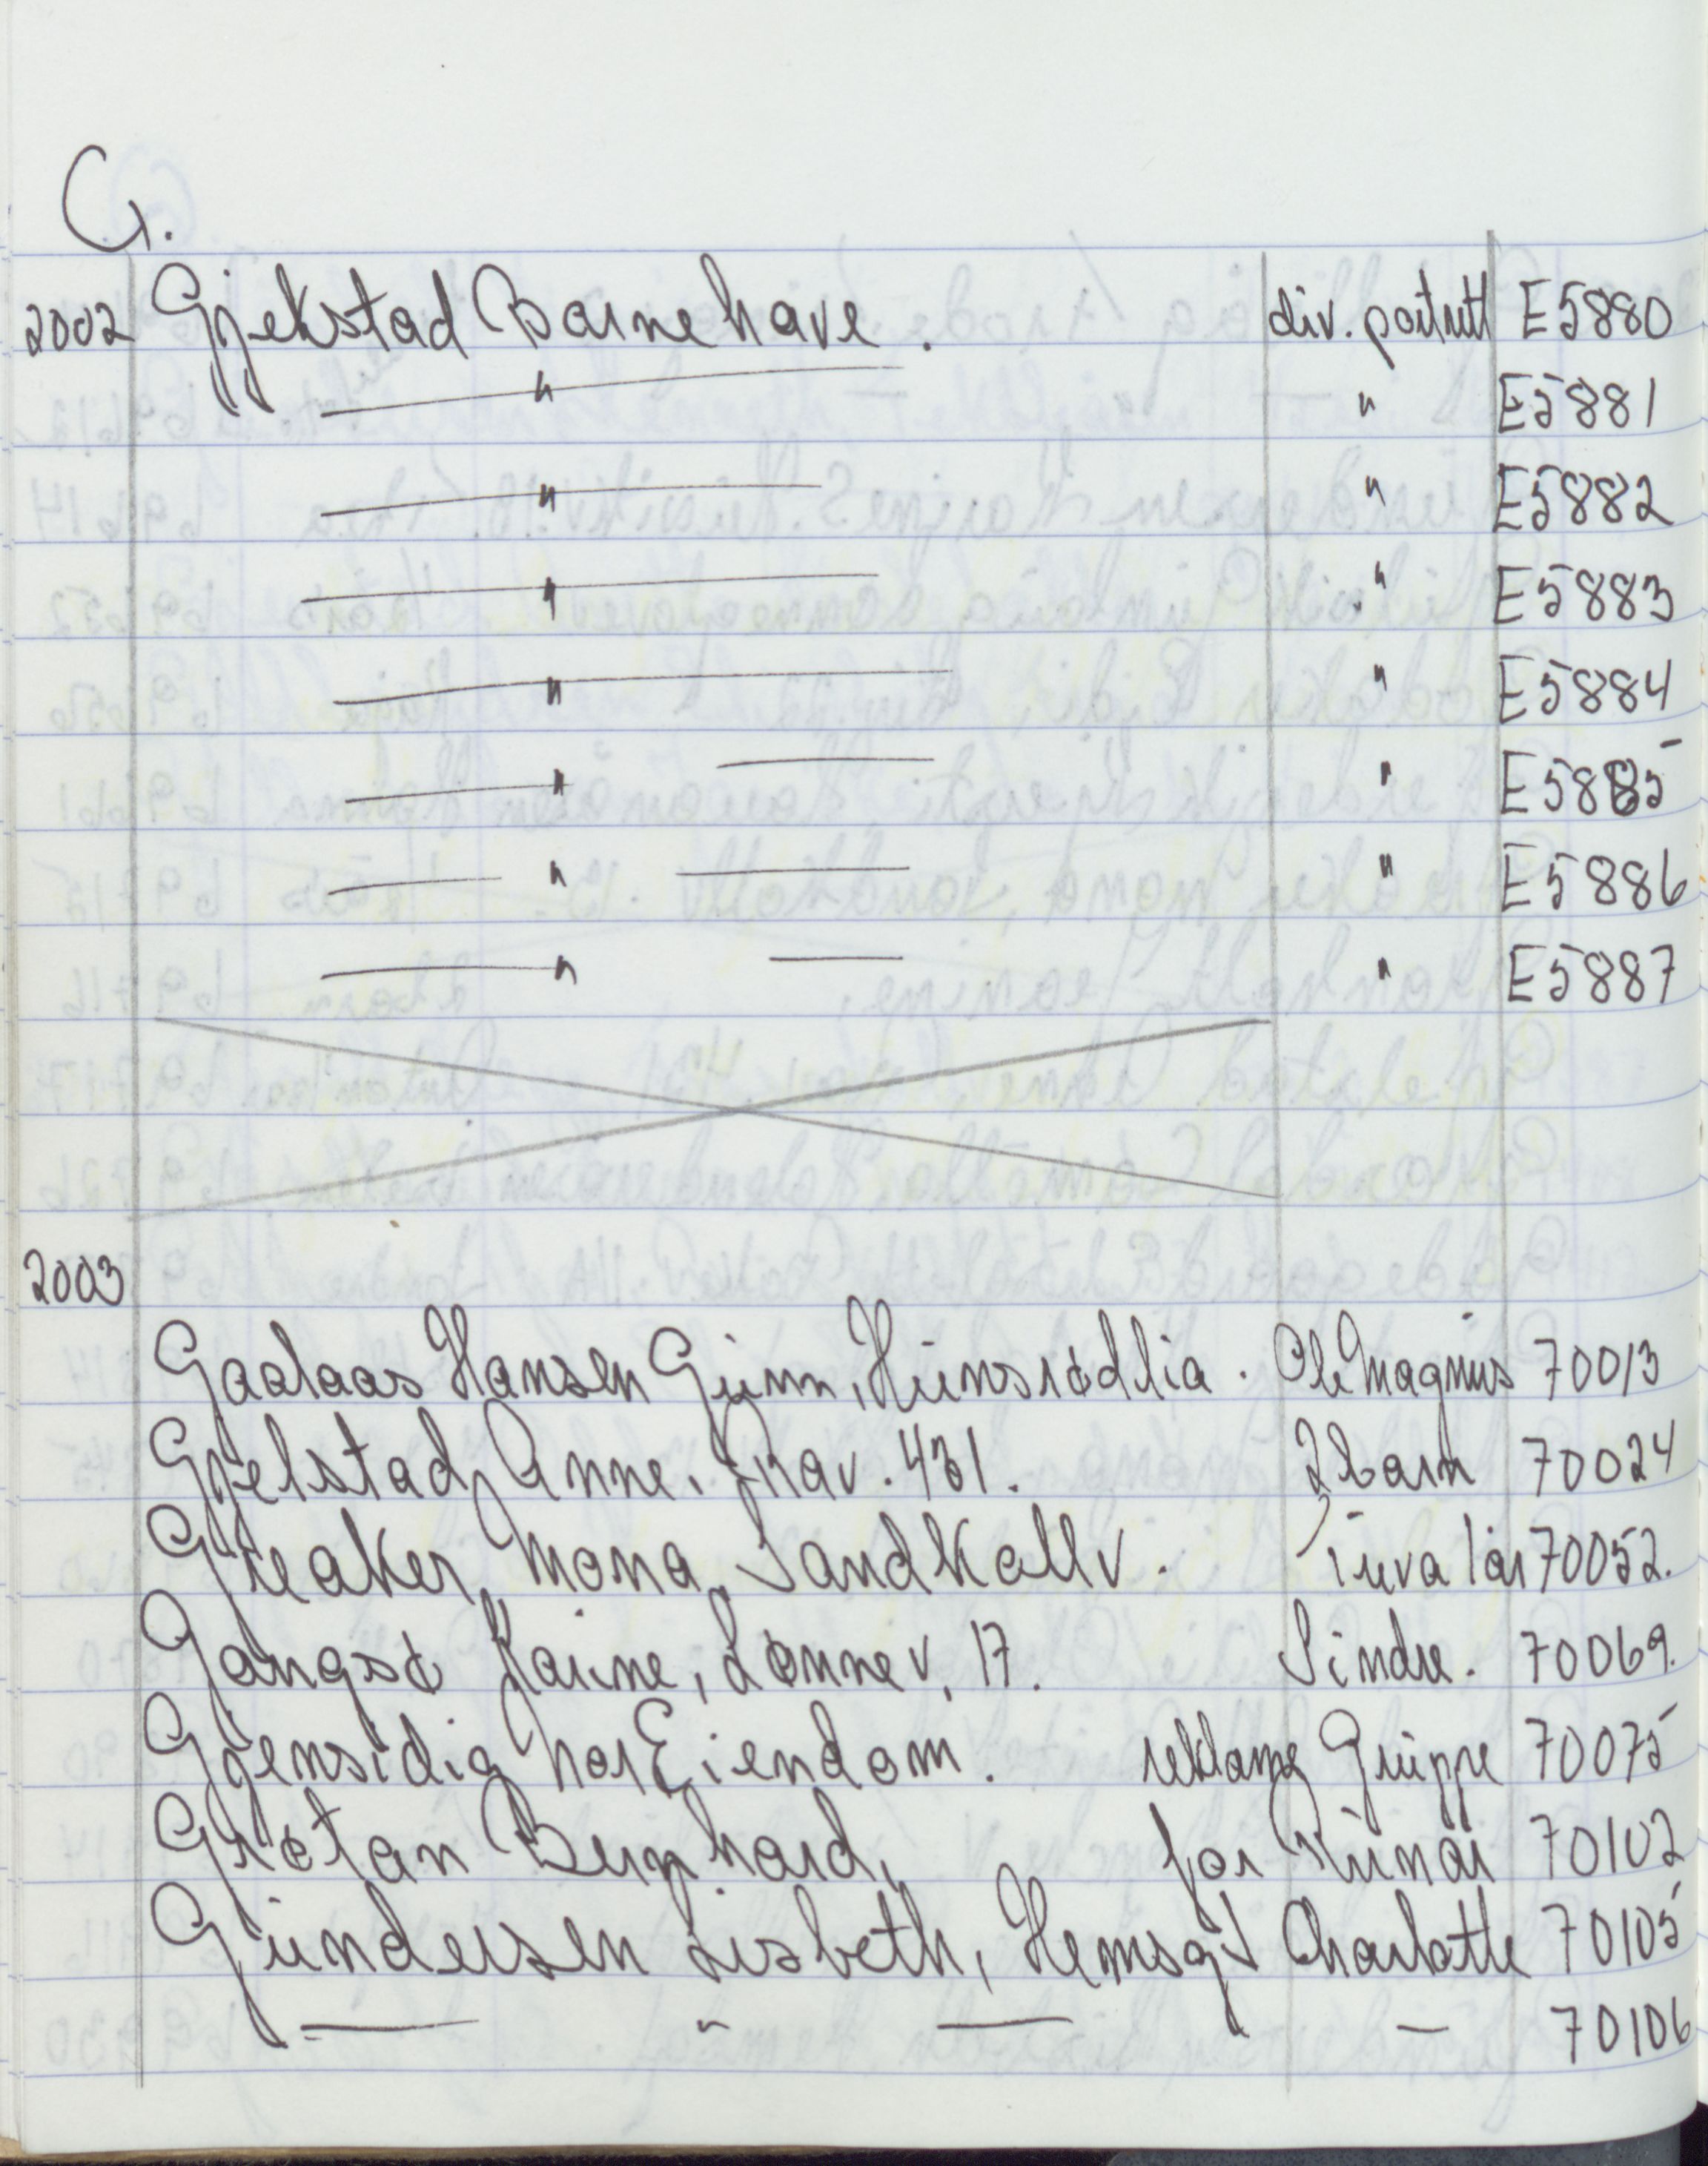 G.
2002 Gjekstad Barnehave. div. portrett E5880
" " E5881
" " E5882
" " E5883
" " E5884
" " E5885
" " E5886
" " E5887
2003
Gaalaas Hansen Gunn, Hunsrødlia. Ole Magnus 70013
Gjelstad Anne. Rav. 431. 2 barn 70024
Greaker, Mona, Sandkollv. Tuva 1 år 70052.
Gangsø Karine, Lønnev, 17. Sindre. 70069.
Gjensidig Nor Eiendom. reklame Gruppe 70075
Grøtan Bernhard, for Runar 70102
Gundersen Lisbeth, Hemsgt Charlotte 70105
— " — — 70106